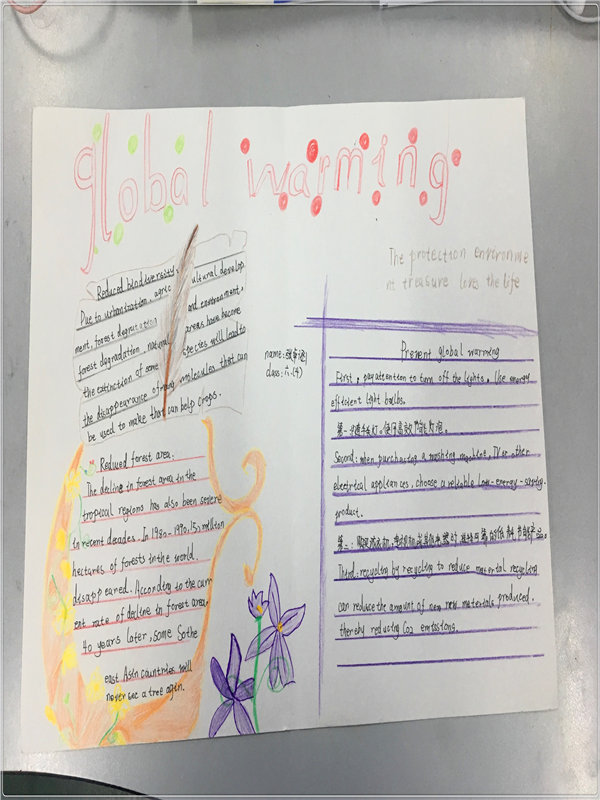 global warming
The protection environme
nt treasure love the life
Reduced biodiversity.
Due to urbanization, agricultural develop
ment, forest degradation and environment,
forest degradation, natural areas have become
the extinction of some species will lead to
the disappearance of many molecules that can
be used to make that can help crops.
name:
class: 六.(4)
Reduced forest area.
The decling in forest area in the
tropical regions has also been severe
in recent decades. In 1980-1990, 150 million
hectares of forests in the world.
disappeared. According to the curr
ent rate of decline in forest area.
40 years later, some Sothe
east Asin countries will
never see a tree again.
Prevent global warming
First, pay attention to turn off the lights, Use energy
efficient light bulbs.
第一:随手关灯。使用高效节能灯泡。
Second: when purchasing a washing machine, TV or other
electrical appliances, choose a reliable low-energy-saving.
product.
第二:
Third: recycling by recycling to reduce material recycling
can reduce the amount of new new materials produced.
thereby reducing Co2 emissions.